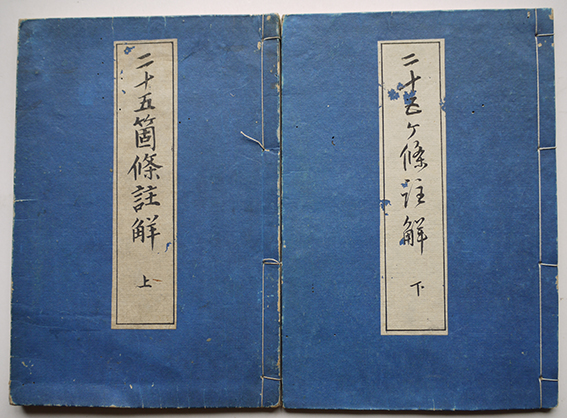 二十五箇條註解 上
二十五ヶ條註解 下